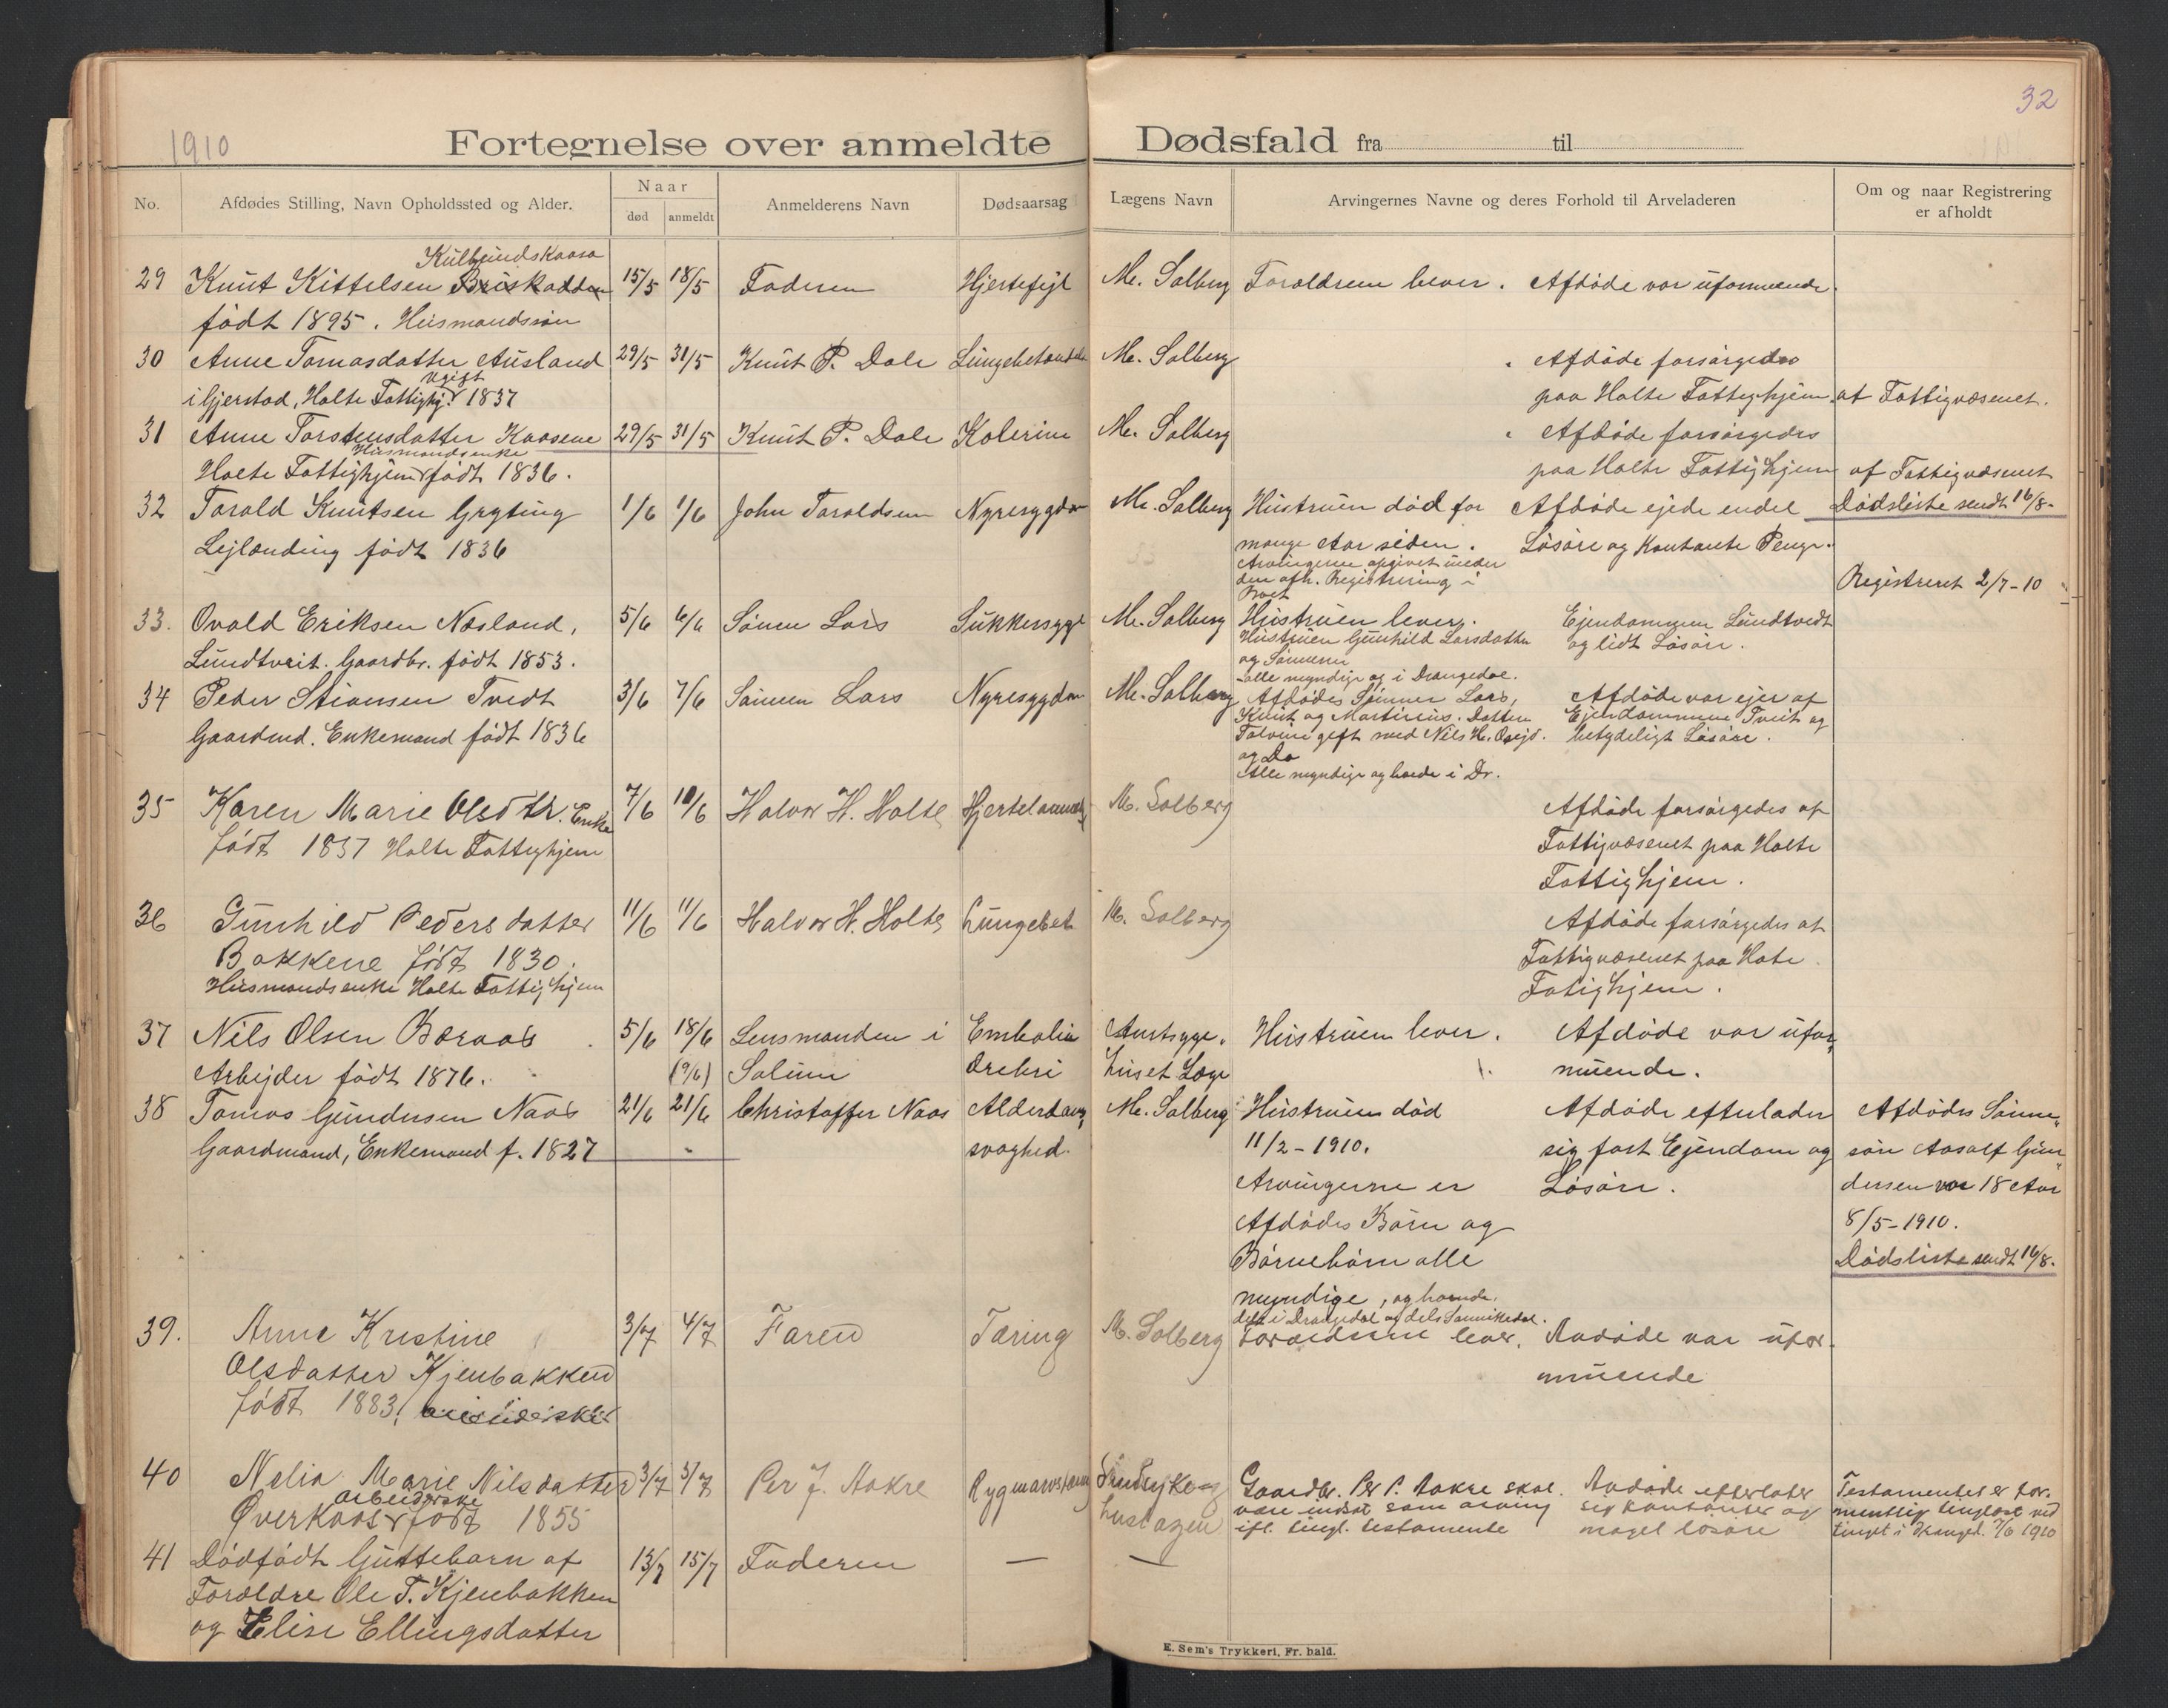 1910
32
Fortegnelse over anmeldte Dødsfald fra til
No.
Afdødes Stilling, Navn Opholdssted og Alder.
Naar
død
anmeldt
Anmelderens Navn
Dødsaarsag
Lægens Navn
Arvingernes Navne og deres Forhold til Arveladeren
Om og naar Registrering
er afholdt
29 Knut Kittelsen 15/5 18/5 Faderen Hjertefejl M. Solberg Forældrene lever. Afdøde var uformuende.
født 1895. Husmandssøn
30 Anne Tomasdatter Ausland 29/5 31/5 Knut P. Dale M. Solberg Afdøde forsørgedes
ugift
i Gjerstad, Holte Fattighj. 1837 paa Holte Fattighjem af Fattigvæsenet.
31 Anne Torstensdatter Kaasene 29/5 31/5 Knut P. Dale Kolerine M. Solberg Afdøde forsørgedes
Husmandsenke
Holte Fattighjem født 1836. paa Holte Fattighjem af Fattigvæsenet
32 Tarald Knutsen Gryting 1/6 1/6 John Taraldsen Nyresygdom M. Solberg Hustruen død for Afdøde ejede endel Dødsliste sendt 16/8-
Lejlænding født 1836 mange Aar siden. Løsøre og Kontante Penge.
Arvingerne opgivet under
den afh. Registrering i
Boet
Registreret 2/7-10
33. Ovald Eriksen Næsland, 5/6 6/6 Sønnen Lars Sukkersyge M. Solberg Hustruen lever. Ejendommen Lundtvedt
Lundtveit. Gaardbr. født 1853. Hustruen Gunhild Larsdatter og lidt Løsøre.
og Sønnerne
alle myndige og i Drangedal.
34 Peder Stiansen Tvedt 3/6 7/6 Sønnen Lars Nyresygdom M. Solberg Afdødes Sønner Lars, Afdøde var ejer af
Gaardmd. Enkemand født 1836 Knut og Martinius. Datteren Ejendommene Tveit og
gift med Nils H. betydeligt Løsøre.
Alle myndige og boede i Dr.
35 Karen Marie Olsdtr. Enke 7/6 10/6 Halvor H. Holte M. Solberg Afdøde forsørgedes af
født 1837 Holte Fattighjem Fattigvæsenet paa Holte
Fattighjem.
36 Gunhild Pedersdatter 11/6 11/6 Halvor H. Holte Lungebet M. Solberg Afdøde forsørgedes af
Bakkene født 1830. Fattigvæsenet paa Hote
Husmandsenke Holte Fattighjem Fatighjem.
37 Nils Olsen Boraas 5/6 18/6 Lensmanden i Embolia Amtsyge- Hustruen lever. Afdøde var ufor-
Arbejder født 1876. (9/6) Solum huset Læge muende.
38 Tomas Gundersen Naas 21/6 21/6 Christoffer Naas Alderdoms- M. Solberg Hustruen død Afdøde efterlader Afdødes Sønne-
Gaardmand, Enkemand f. 1827 svaghed. 11/2-1910. sig fast Ejendom og søn Aasolf Gun-
Arvingerne er Løsøre. dersen var 18 Aar
Afdødes Børn og 8/5-1910.
Børnebørn alle Dødsliste sendt 16/8.
myndige, og boende.
dels i Drangedal og dels Sannikedal.
39. Anne Kristine 3/7 4/7 Faren Tæring M. Solberg Foreldrene lever. Avdøde var ufor-
Olsdatter Kjenbakken muende
født 1883.
40 Nelia Marie Nilsdatter 3/7 3/7 Per J. Aakre Gaardbr. Per P. Aakre skal Avdøde efterlater Testamentet er for-
arbeiderske
Øverkaas født 1855 være indsat som arving sig kontanter og mentlig tinglæst ved
ifl. tingl. testamente noget løsøre tinget i Dranged. 7/6 1910
41 Dødfødt Guttebarn af 13/7 15/7 Faderen — —
Forældre Ole T. Kjenbakken
og Elise Ellingsdatter
E. Sem's Trykkeri, Fr.hald.